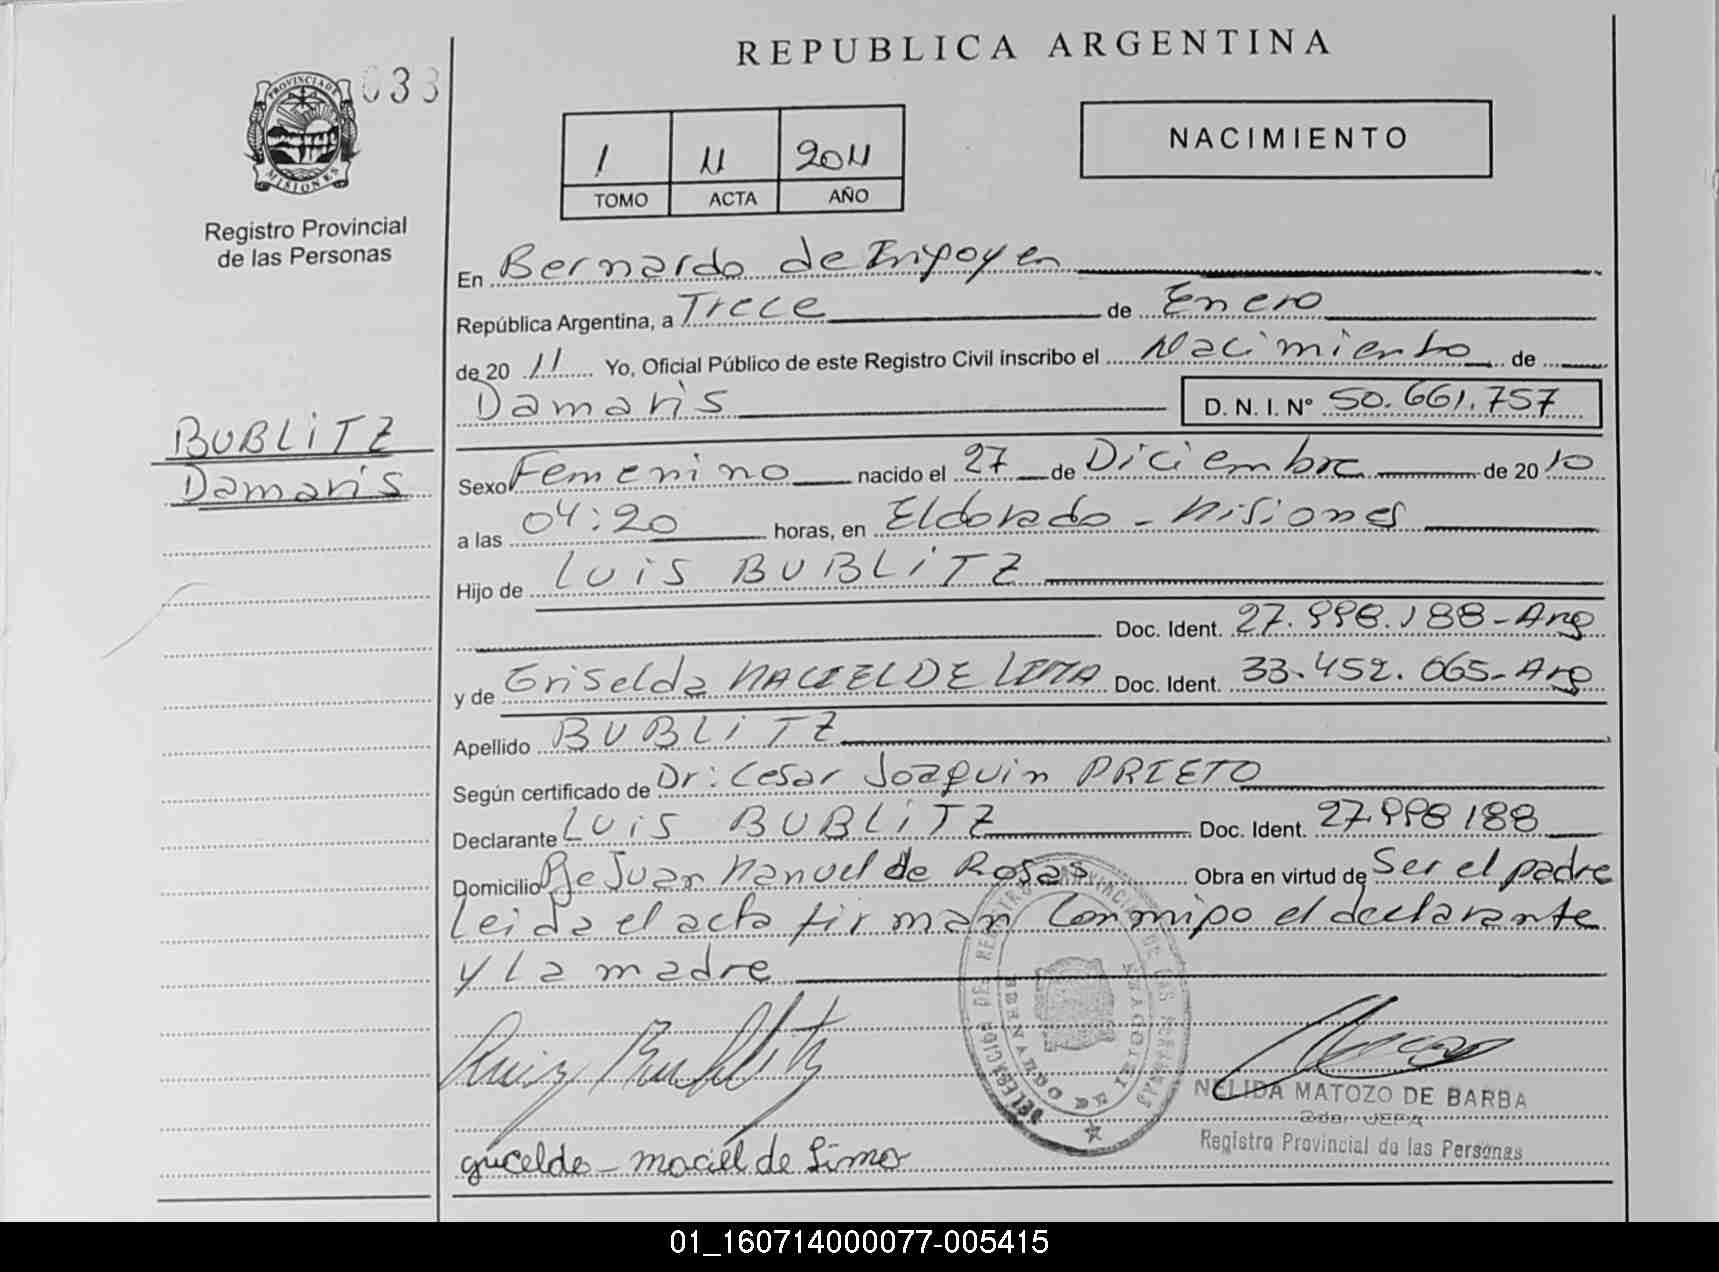 REPUBLICA ARGENTINA
033
PROVINCIA DE
MISIONES
Registro Provincial
de las Personas
1 11 2011
TOMO ACTA AÑO
NACIMIENTO
En Bernardo de Irigoyen
República Argentina, a Trece de Enero
de 20 11 Yo, Oficial Público de este Registro Civil inscribo el Nacimiento de
Damaris D. N. I. N° 50.661.757
BUBLITZ
Damaris
Sexo Femenino nacido el 27 de Diciembre de 2010
a las 04:20 horas, en Eldorado - Misiones
Hijo de LUIS BUBLITZ
Doc. Ident. 27.998.188-Arg
y de Griselda MACIEL DE LIMA Doc. Ident. 33.452.065-Arg
Apellido BUBLITZ
Según certificado de Dr: Cesar Joaquin PRIETO
Declarante LUIS BUBLITZ Doc. Ident. 27.998188
Domicilio Juan Manuel de Rosas Obra en virtud de Ser el padre
Leida el acta firman conmigo el declarante
y la madre
Luis Bublitz
DELEGACION DEL REGISTRO PROVINCIAL DE LAS PERSONAS
BERNARDO DE IRIGOYEN
NELIDA MATOZO DE BARBA
2da. JEFA
Registro Provincial de las Personas
gricelda - maciel de Lima
01_160714000077-005415